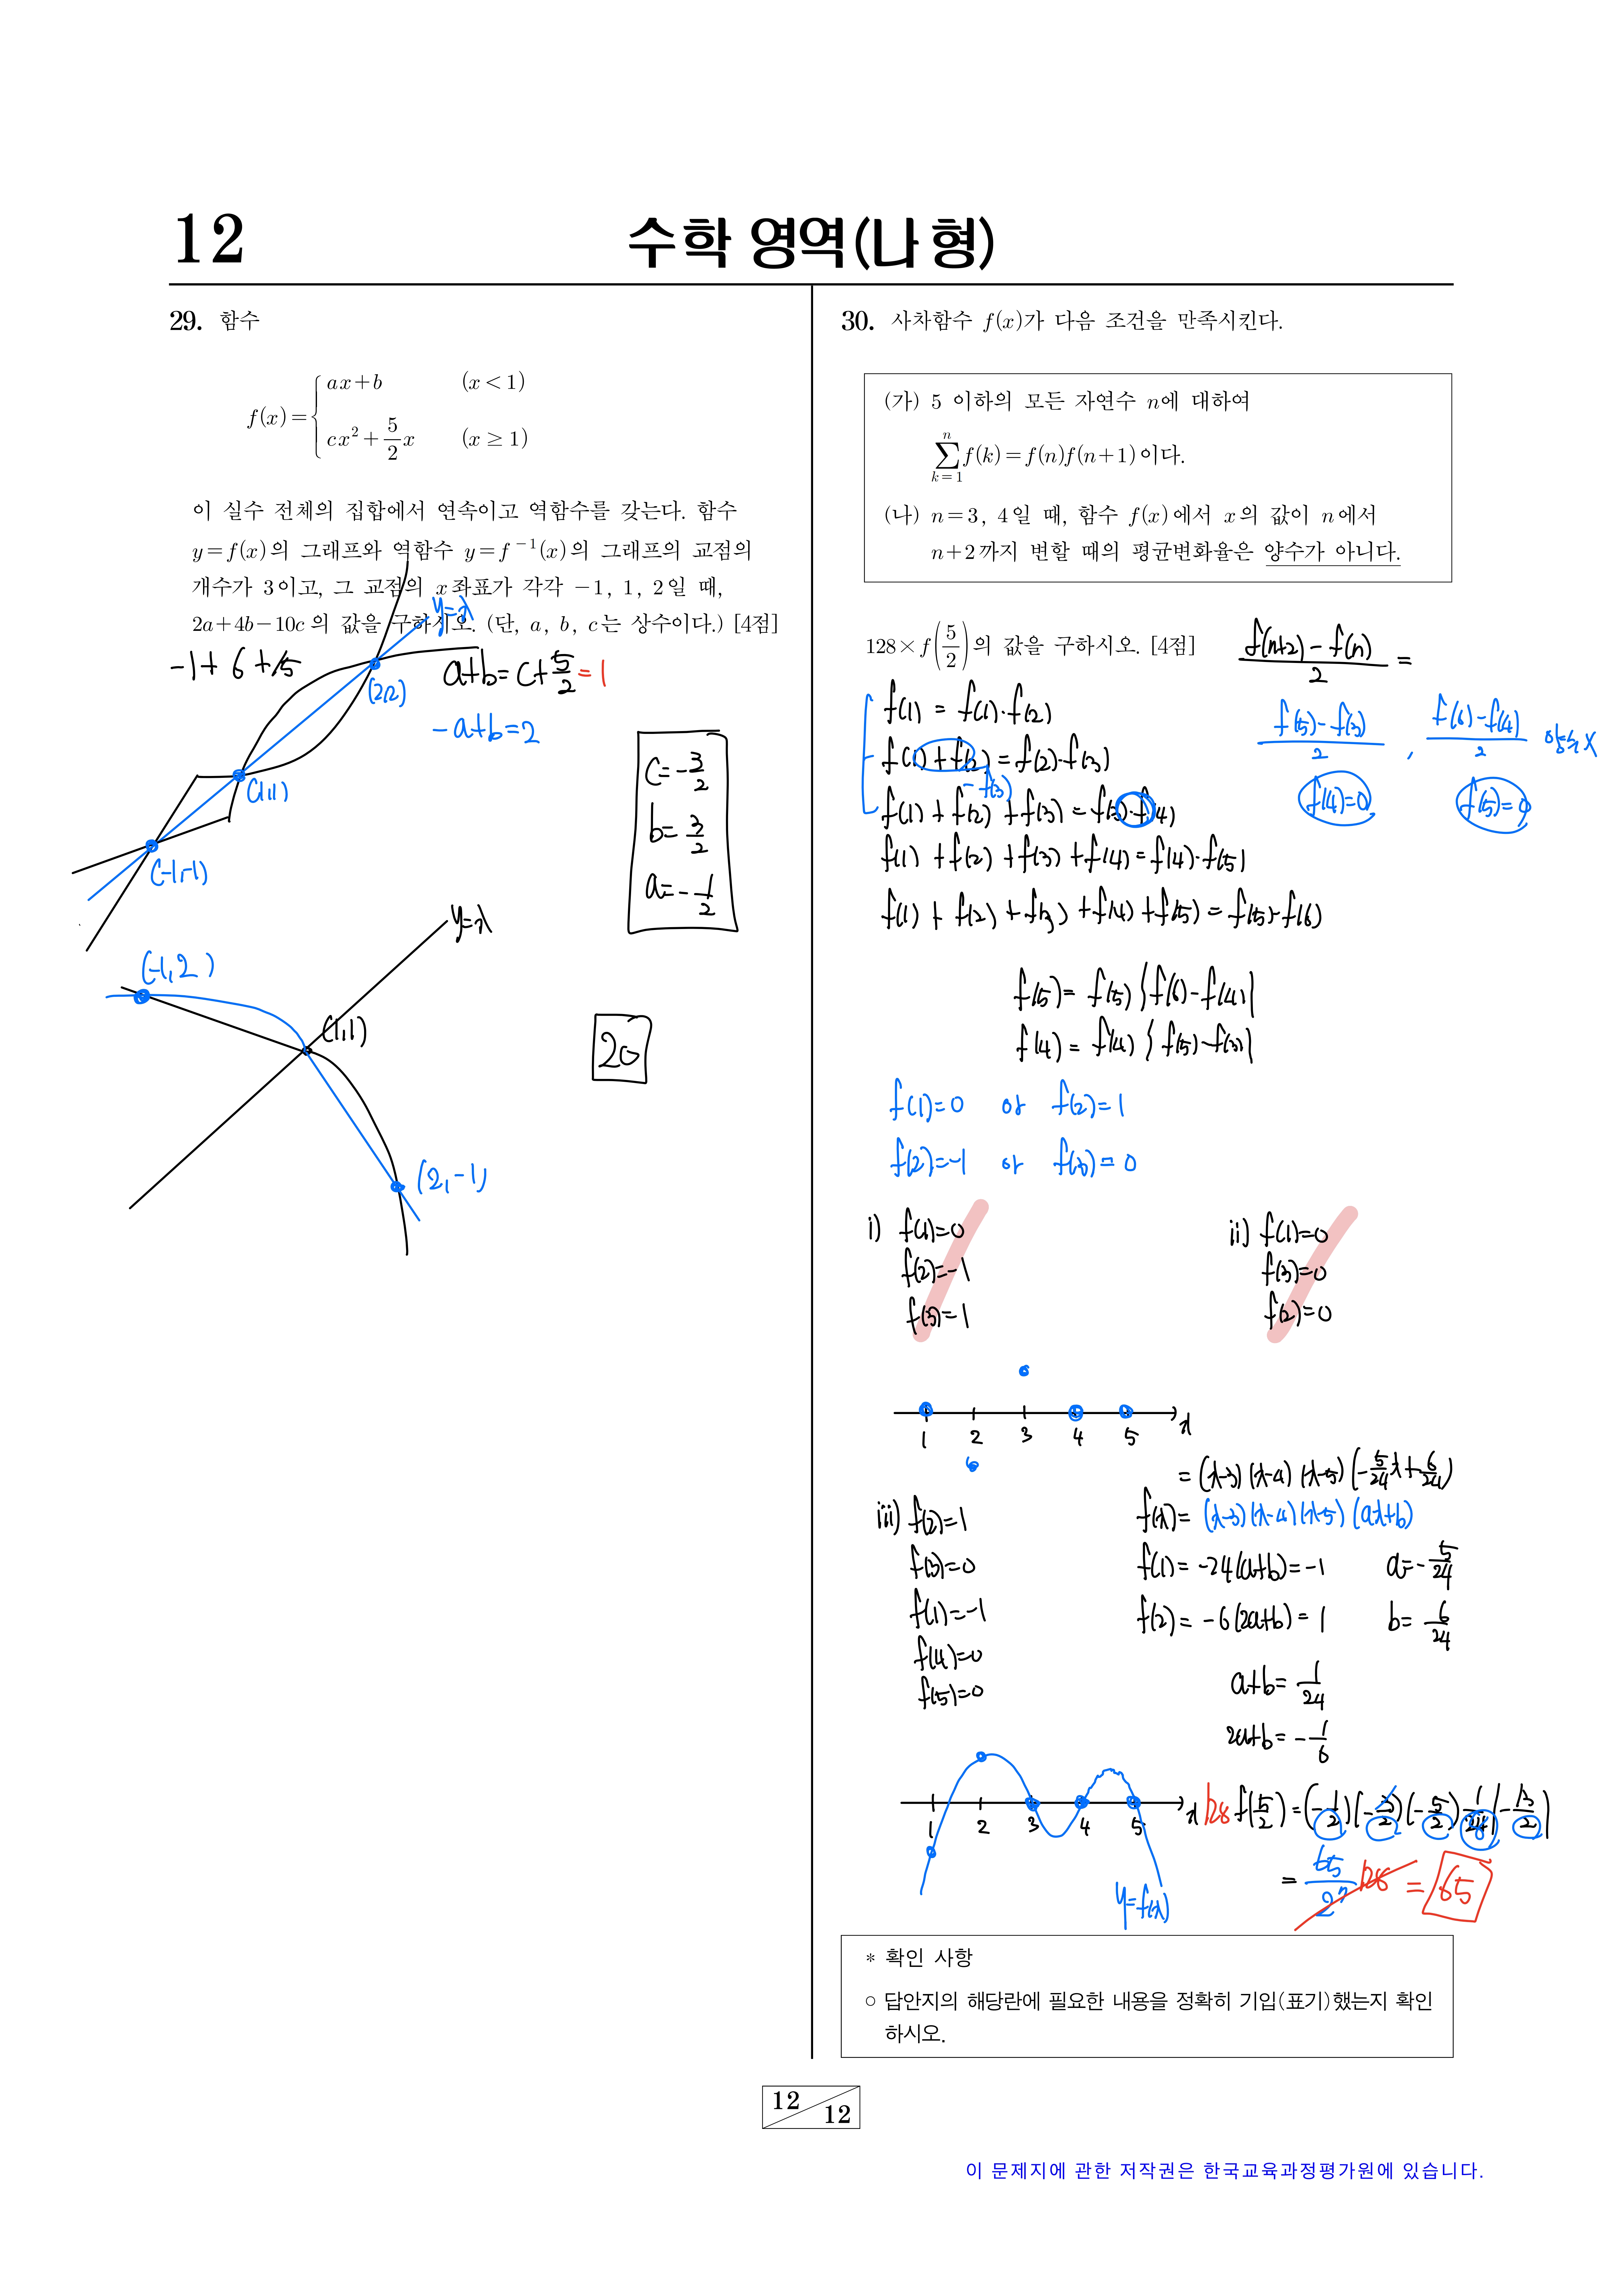 12
수학 영역(나형)
29. 함수
f(x) = { ax+b (x < 1)
cx² + 5/2 x (x ≥ 1)
이 실수 전체의 집합에서 연속이고 역함수를 갖는다. 함수
y=f(x)의 그래프와 역함수 y=f⁻¹(x)의 그래프의 교점의
개수가 3이고, 그 교점의 x좌표가 각각 −1, 1, 2일 때,
2a+4b−10c의 값을 구하시오. (단, a, b, c는 상수이다.) [4점]
y=x
-1+6+15
a+b=c+5/2=1
(2,2)
-a+b=2
(1,1)
c=-3/2
b=3/2
a=-1/2
(-1,-1)
y=x
(-1,2)
(1,1)
20
(2,-1)
30. 사차함수 f(x)가 다음 조건을 만족시킨다.
(가) 5 이하의 모든 자연수 n에 대하여
n∑k=1 f(k)=f(n)f(n+1)이다.
(나) n=3, 4일 때, 함수 f(x)에서 x의 값이 n에서
n+2까지 변할 때의 평균변화율은 양수가 아니다.
128×f(5/2)의 값을 구하시오. [4점]
(f(n+2)-f(n))/2 =
f(1) = f(1)·f(2)
(f(5)-f(3))/2 , (f(6)-f(4))/2 양수X
f(1)+f(2)=f(2)·f(3)
-f(3)
f(4)=0 f(5)=0
f(1)+f(2)+f(3)=f(3)·f(4)
f(1)+f(2)+f(3)+f(4)=f(4)·f(5)
f(1)+f(2)+f(3)+f(4)+f(5)=f(5)·f(6)
f(5)=f(5){f(6)-f(4)}
f(4)=f(4){f(5)-f(3)}
f(1)=0 or f(2)=1
f(2)=-1 or f(3)=0
i) f(1)=0
f(2)=-1
f(3)=1
ii) f(1)=0
f(3)=0
f(2)=0
1 2 3 4 5 x
=(x-3)(x-4)(x-5)(-5/24x+6/24)
iii) f(2)=1
f(3)=0
f(1)=-1
f(4)=0
f(5)=0
f(x)=(x-3)(x-4)(x-5)(ax+b)
f(1)=-24(a+b)=-1 a=-5/24
f(2)=-6(2a+b)=1 b=6/24
a+b=1/24
2a+b=-1/6
1 2 3 4 5 x
y=f(x)
128 f(5/2)=(-1/2)(-3/2)(-5/2)1/24(-13/2)
8
=65/2⁷ 128 = 65
* 확인 사항
○ 답안지의 해당란에 필요한 내용을 정확히 기입(표기)했는지 확인
하시오.
12
12
이 문제지에 관한 저작권은 한국교육과정평가원에 있습니다.